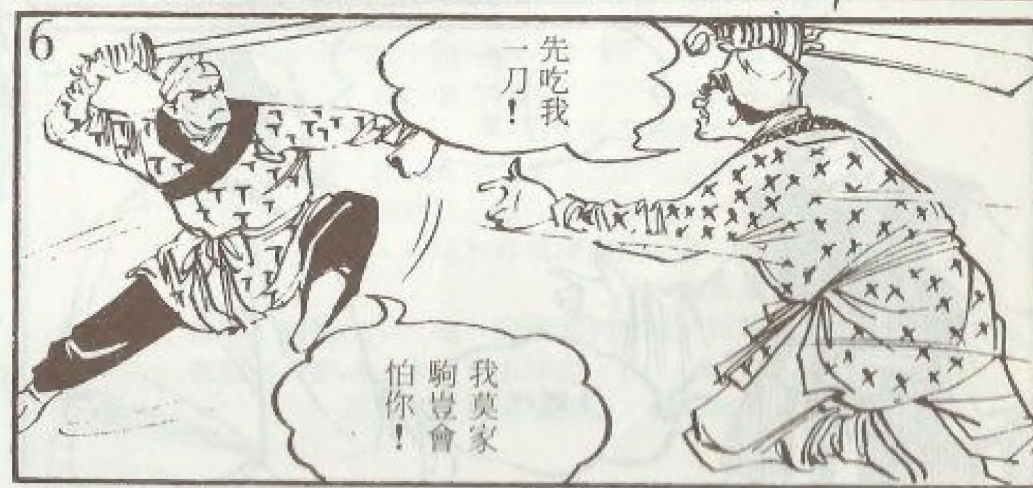 6
先吃我
一刀！
我莫家
駒豈會
怕你！